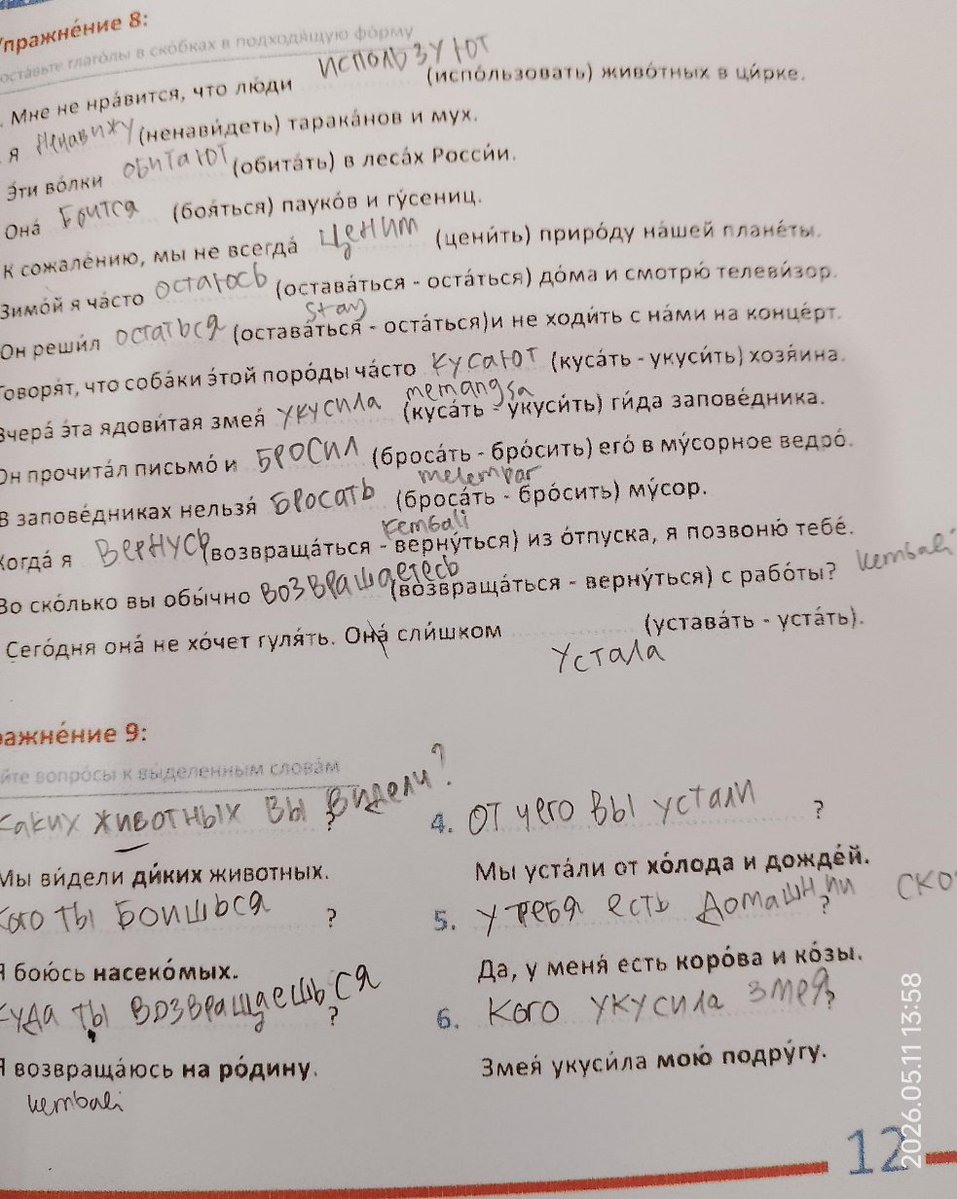 Упражне́ние 8:
оста́вьте глаго́лы в ско́бках в подходя́щую фо́рму
. Мне не нра́вится, что лю́ди используют (испо́льзовать) живо́тных в ци́рке.
Я ненавижу (ненави́деть) тарака́нов и мух.
Э́ти во́лки обитают (обита́ть) в леса́х Росси́и.
Она́ боится (боя́ться) пауко́в и гу́сениц.
К сожале́нию, мы не всегда́ ценим (цени́ть) приро́ду на́шей плане́ты.
Зимо́й я ча́сто остаюсь (остава́ться - оста́ться) до́ма и смотрю́ телеви́зор.
stay
Он реши́л остаться (остава́ться - оста́ться)и не ходи́ть с на́ми на конце́рт.
Говоря́т, что соба́ки э́той поро́ды ча́сто кусают (куса́ть - укуси́ть) хозя́ина.
memangsa
Вчера́ э́та ядови́тая змея́ укусила (куса́ть - укуси́ть) ги́да запове́дника.
Он прочита́л письмо́ и бросил (броса́ть - бро́сить) его́ в му́сорное ведро́.
melempar
В запове́дниках нельзя́ бросать (броса́ть - бро́сить) му́сор.
kembali
Когда́ я вернусь (возвраща́ться - верну́ться) из о́тпуска, я позвоню́ тебе́.
Во ско́лько вы обы́чно возвращаетесь (возвраща́ться - верну́ться) с рабо́ты? kembali
Сего́дня она́ не хо́чет гуля́ть. Она́ сли́шком (устава́ть - уста́ть).
устала
ражне́ние 9:
йте вопро́сы к вы́деленным слова́м
каких животных вы видели?
?
Мы ви́дели ди́ких живо́тных.
кого ты боишься ?
Я бою́сь насеко́мых.
куда ты возвращаешься
?
Я возвраща́юсь на ро́дину.
kembali
4. от чего вы устали ?
Мы уста́ли от хо́лода и дожде́й.
5. у тебя есть ско
?
Да, у меня́ есть коро́ва и ко́зы.
6. кого укусила змея ?
Змея́ укуси́ла мою́ подру́гу.
12
2026.05.11 13:58